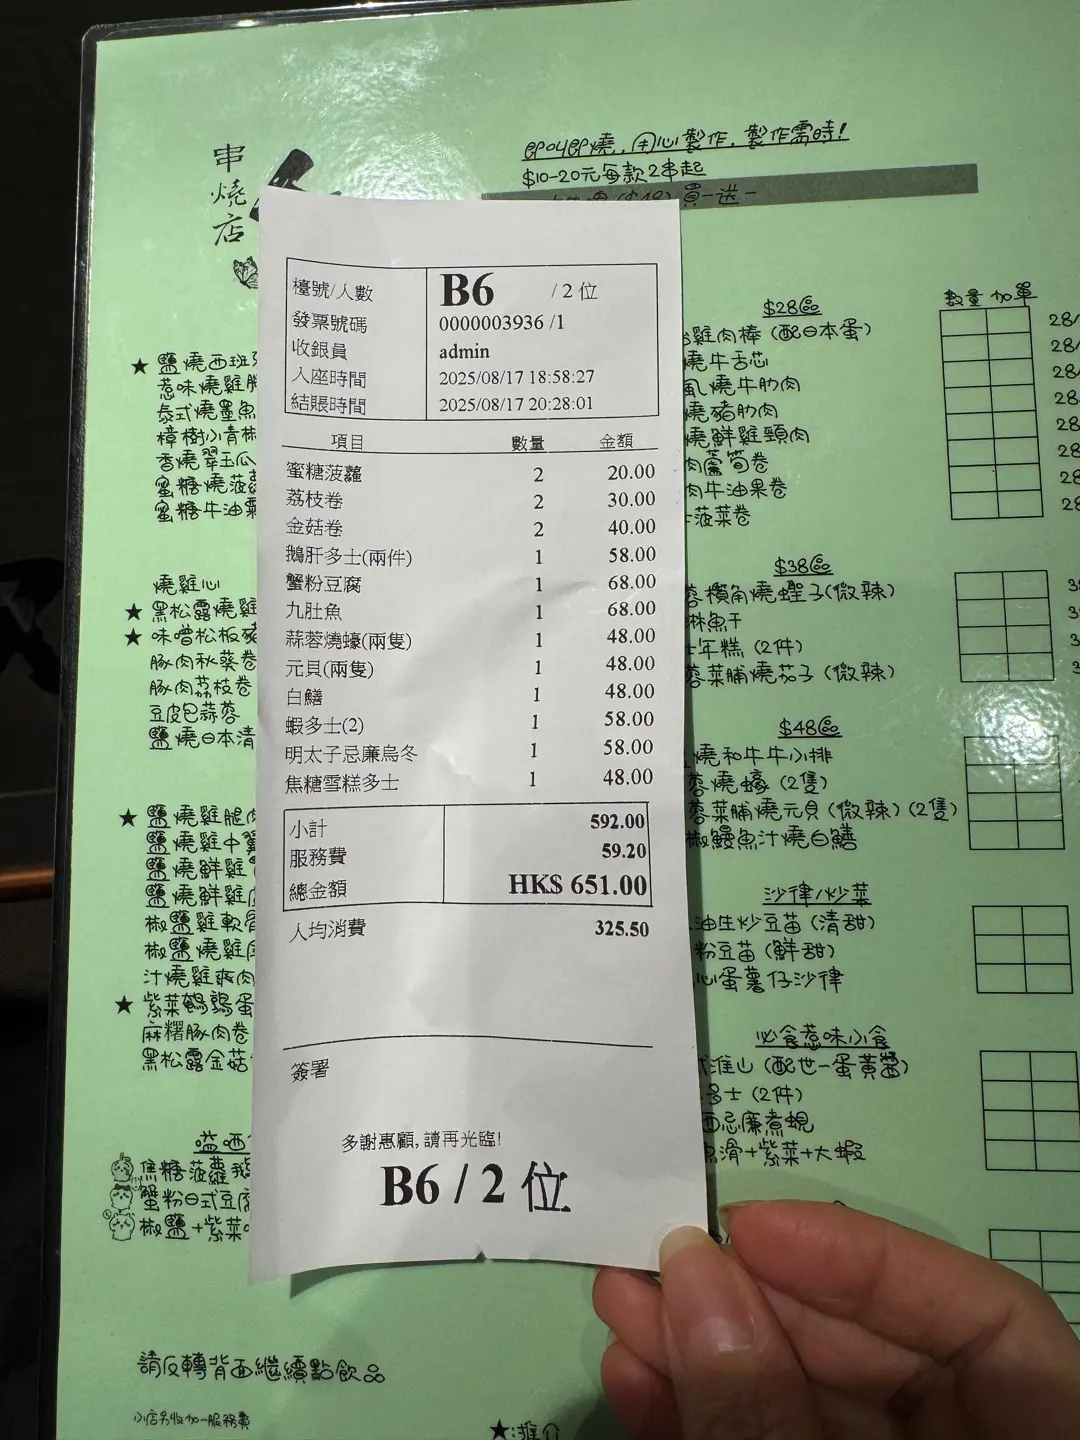 串
燒
店
即叫即燒，用心製作，製作需時！
$10-20元每款2串起
買一送一
檯號/人數 B6 /2位
發票號碼 0000003936 /1
收銀員 admin
入座時間 2025/08/17 18:58:27
結賬時間 2025/08/17 20:28:01
項目 數量 金額
蜜糖菠蘿 2 20.00
荔枝卷 2 30.00
金菇卷 2 40.00
鵝肝多士(兩件) 1 58.00
蟹粉豆腐 1 68.00
九肚魚 1 68.00
蒜蓉燒蠔(兩隻) 1 48.00
元貝(兩隻) 1 48.00
白鱔 1 48.00
蝦多士(2) 1 58.00
明太子忌廉烏冬 1 58.00
焦糖雪糕多士 1 48.00
小計 592.00
服務費 59.20
總金額 HK$ 651.00
人均消費 325.50
簽署
多謝惠顧, 請再光臨!
B6 / 2 位
★ 鹽燒西班
惹味燒雞
泰式燒墨魚
樟樹小青椒
香燒翠玉瓜
蜜糖燒菠蘿
蜜糖牛油
燒雞心
★ 黑松露燒雞
★ 味噌松板豬
豚肉秋葵卷
豚肉荔枝卷
豆皮包蒜蓉
鹽燒日本清
★ 鹽燒雞腿肉
鹽燒雞中翼
鹽燒鮮雞
鹽燒鮮雞
椒鹽雞軟骨
椒鹽燒雞
汁燒雞爽肉
★ 紫菜鵪鶉蛋
麻糬豚肉卷
黑松露金菇
嗌洒
焦糖菠蘿鵝
蟹粉日式豆腐
椒鹽+紫菜
$28區
數量 加單
雞肉棒 (配日本蛋)
燒牛舌芯
風燒牛肋肉
燒豬肋肉
燒鮮雞頸肉
肉蘆筍卷
肉牛油果卷
菠菜卷
28/
28/
28/
28/
28
28
28
28
$38區
蓉欖角燒蟶子(微辣)
魚干
年糕 (2件)
蓉菜脯燒茄子 (微辣)
$48區
燒和牛牛小排
蓉燒蠔 (2隻)
蓉菜脯燒元貝 (微辣) (2隻)
椒鰻魚汁燒白鱔
沙律/炒菜
油生炒豆苗 (清甜)
粉豆苗 (鮮甜)
心蛋薯仔沙律
必食惹味小食
淮山 (配世一蛋黃醬)
多士 (2件)
西忌廉煮蜆
滑+紫菜+大蝦
請反轉背面繼續點飲品
小店另收加一服務費
★:推介